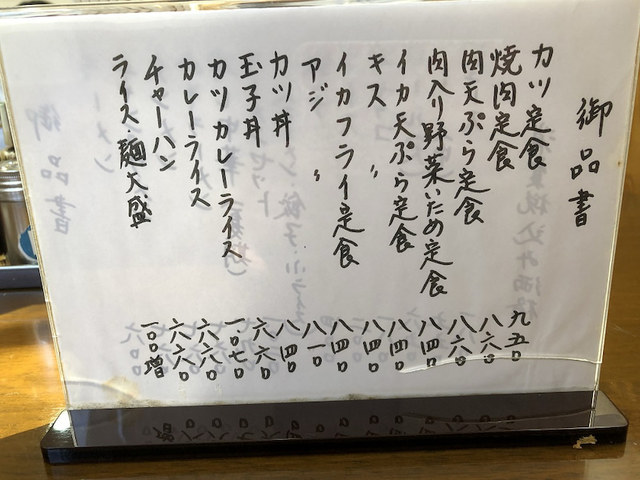 御品書
カツ定食 九五〇
焼肉定食 八六〇
肉天ぷら定食 八六〇
肉入り野菜いため定食 八四〇
イカ天ぷら定食 八四〇
キス 〃 八四〇
イカフライ定食 八四〇
アジ 〃 八一〇
カツ丼 八四〇
玉子丼 六六〇
カツカレーライス 一〇七〇
カレーライス 六六〇
チャーハン 六六〇
ライス・麺大盛 一〇〇増